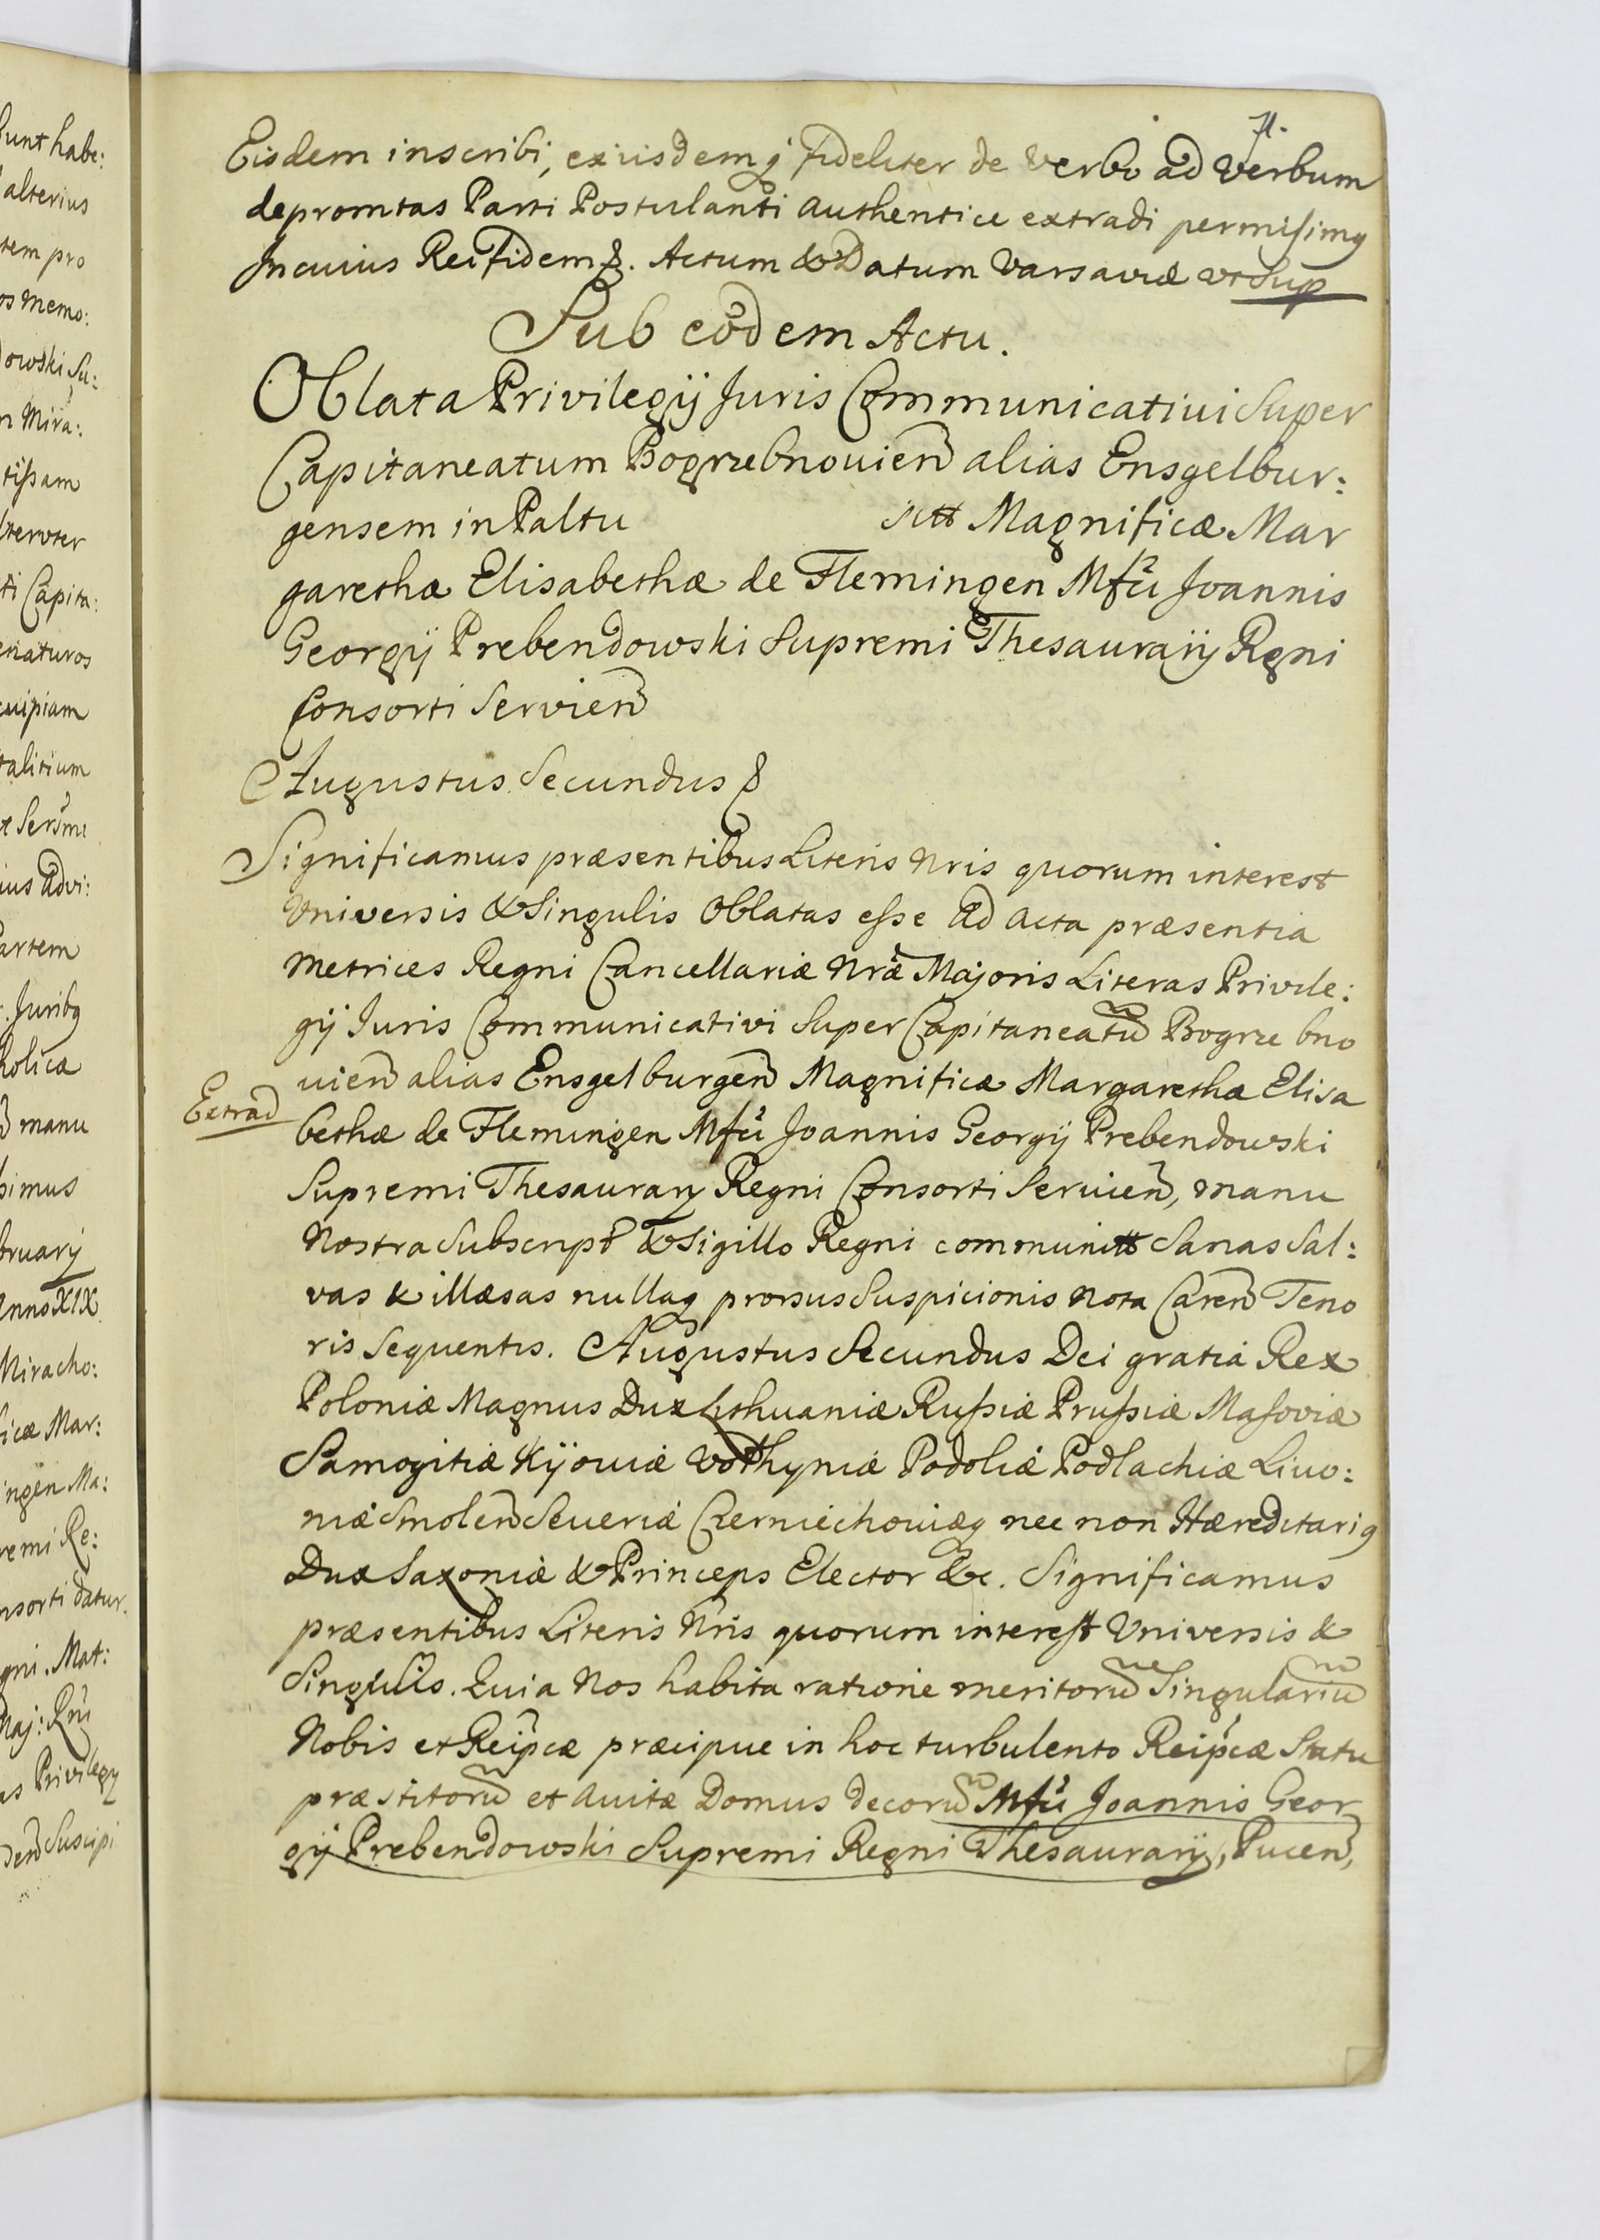 71.
Eisdem inscribi, exiisdemq fideliter de verbo ad verbum
depromtas Parti Postulanti authentice extradi permisimq
In cuius Rei fidem &. Actum & Datum Varsaviæ vt Sup
Sub eodem Actu.
Oblata Privilegÿ Juris Communicativi Super
Capitaneatum Bogrzebnovien alias Ensgelbur:
gensem in Paltu sitt Magnificæ Mar
garethæ Elisabethæ de Flemingen Mfci Joannis
Georgÿ Prebendowski Supremi Thesaurarÿ Regni
Consorti Servien
Augustus Secundus &
Significamus præsentibus Literis Nris quorum interest
Universis & Singulis Oblatas esse ad acta præsentia
Metrices Regni Cancellariæ Nræ Majoris Literas Privile:
gÿ Juris Communicativi Super Capitaneatu Bogrze bno
vien alias Ensgelburgen Magnificæ Margarethæ Elisa
Extrad
bethæ de Flemingen Mfci Joannis Georgÿ Prebendowski
Supremi Thesaurarÿ Regni Consorti Servien, manu
Nostra Subscript & Sigillo Regni communitt Sanas Sal:
vas & illæsas nullaq prorsus Suspicionis nota Caren Teno
ris Sequentis. Augustus Secundus Dei gratia Rex
Poloniæ Magnus Dux Lithuaniæ Russiæ Prussiæ Masoviæ
Samogitiæ Kÿoviæ Volhyniæ Podoliæ Podlachiæ Livo:
niæ Smolen Severiæ Czerniechoviæq nec non Hæreditariq
Dux Saxoniæ & Princeps Elector &c. Significamus
præsentibus Literis Nris quorum interest Universis &
Singulis. Quia Nos habita ratione meritoru Singulariu
Nobis et Reipcæ præcipue in hoc turbulento Reipcæ Statu
præstitoru et avitæ Domus decoru Mfci Joannis Geor
gÿ Prebendowski Supremi Regni Thesaurarÿ, Pucen,